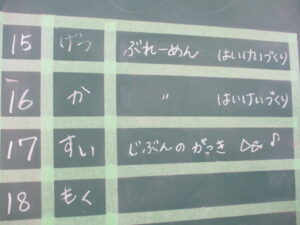 15 げつ ぶれーめん はいけいづくり
16 か 〃 はいけいづくり
17 すい じぶんの がっき ♪
18 もく